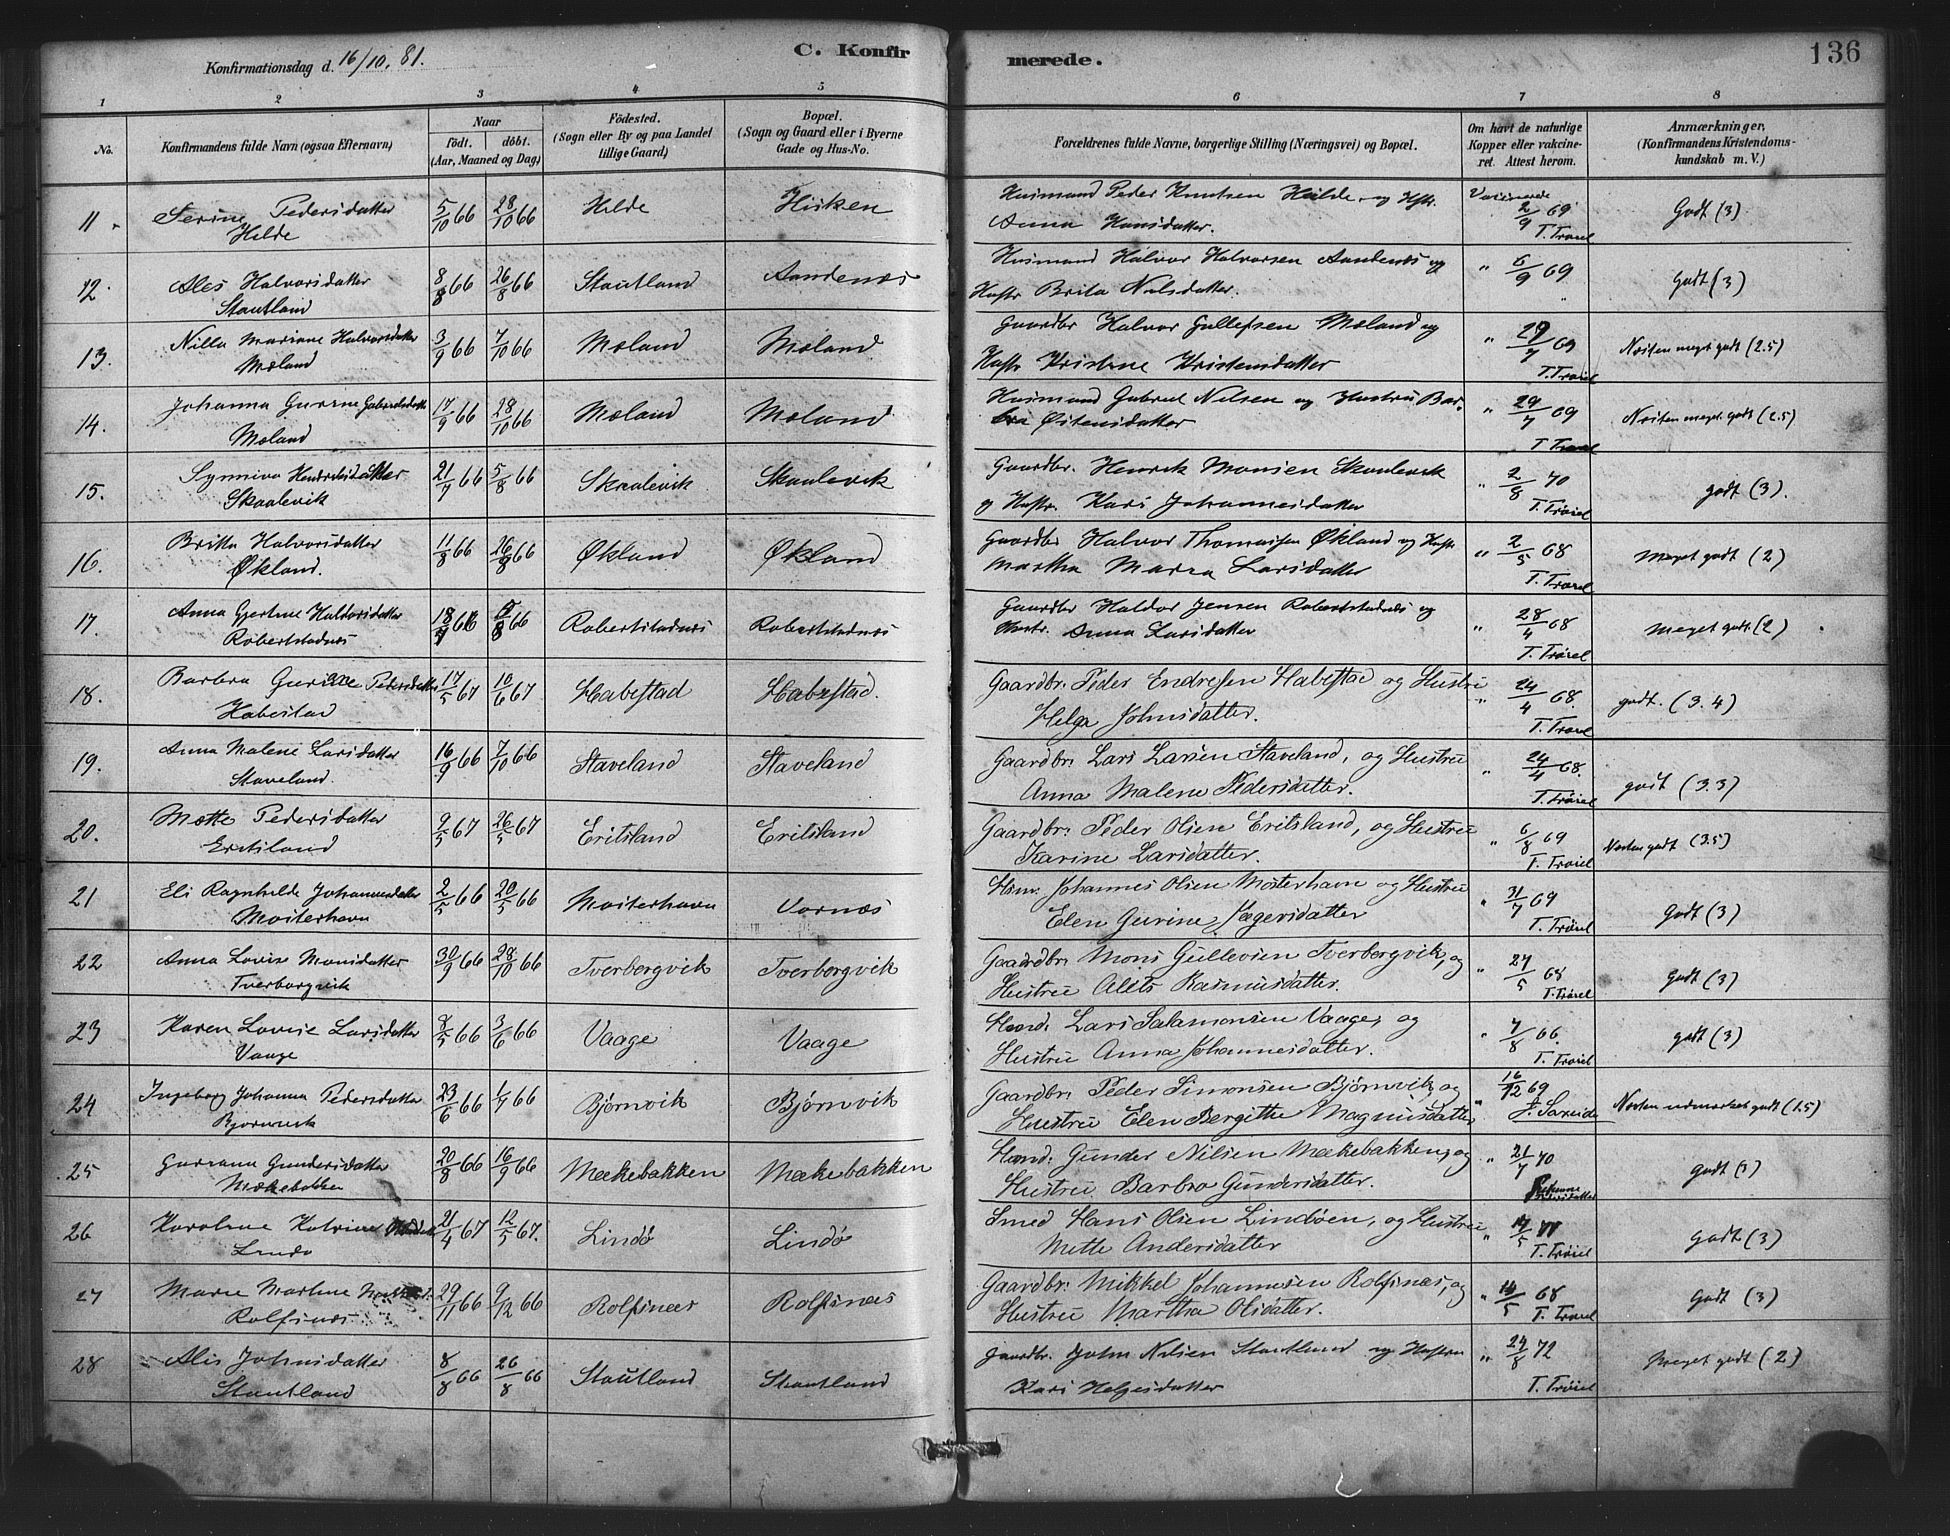 Konfirmationsdag d. 16/10. 81.
C. Konfir
merede.
136
1 2 3 4 5 6 7 8
No.
Konfirmandens fulde Navn (ogsaa Efternavn)
Naar
født. døbt.
(Aar, Maaned og Dag)
Fødested.
(Sogn eller By og paa Landet
tillige Gaard)
Bopæl.
(Sogn og Gaard eller i Byerne
Gade og Hus-No.
Forældrenes fulde Navne, borgerlige Stilling (Næringsvei) og Bopæl.
Om havt de naturlige
Kopper eller vakcine-
ret. Attest herom.
Anmærkninger.
(Konfirmandens Kristendoms-
kundskab m. V.)
11. Serine Pedersdatter 5/10 66 28/10 66 Hilde Hisken Husmand Peder Knutsen Hilde, og Hstr. 2/9 69 Godt (3).
Hilde Anna Hansdatter. T. Trøiel
12. Ales Halvorsdatter 8/8 66 26/8 66 Stautland Aandenæs Husmand Halvor Halvorsen Aandenæs og " 6/9 69 godt (3)
Stautland Hustr Brita Nilsdatter.
13. Nilla Mariane Halvorsdatter 3/9 66 7/10 66 Mæland Mæland Gaardbr Halvor Gullefsen Mæland og " 29/7 69 Næsten meget godt (2.5)
Mæland Hustr Kristene Kristensdatter T. Trøiel
14. Johanna Gurine Gabrielsdatt 17/9 66 28/10 66 Mæland Mæland Husmand Gabriel Nilsen og Hustru Bar- " 29/7 69 Næsten meget godt (2.5)
Mæland bra Østensdatter T. Trøiel
15. Synniva Hendriksdatter 21/7 66 5/8 66 Skaalevik Skaalevik Gaardbr. Henrik Monsen Skaalevik " 2/8 70 godt (3).
Skaalevik og Hustr. Kari Johannesdatter T. Trøiel
16. Britta Halvorsdatter 11/8 66 26/8 66 Økland Økland Gaardbr Halvor Thomassen Økland og Hustr " 2/5 68 Meget godt (2)
Økland. Martha Maria Larsdatter T. Trøiel
17. Anna Gjertine Haldorsdatter 18/7 66 66 Robertstadnæs Robertstadnæs Gaardbr Haldor Jensen Robertstadnæs og " 28/4 68 meget godt (2)
Robertstadnæs Hustr. Anna Larsdatter T. Trøiel
18. Barbra Gurine Pedersdatter 17/5 67 10/6 67 Habestad Habestad. Gaardbr. Peder Endresen Habestad og Hustru " 24/4 68. godt. (3.4)
Habestad Helga Johnsdatter. T. Trøiel
19. Anna Malene Larsdatter 16/9 66 7/10 66 Staveland Staveland Gaardbr. Lars Larsen Staveland, og Hustru " 24/4 68. godt (3.3)
Staveland. Anna Malene Pedersdatter. T. Trøiel
20. Mette Pedersdatter 9/5 67 26/5 67 Eritsland Eritsland Gaardbr. Peder Olsen Eritsland, og Hustru " 6/8 69 Næsten godt (3.5)
Eritsland Karine Larsdatter. T. Trøiel
21 Eli Ragnhilde Johannesdatter 2/5 66 20/5 66 Mosterhavn Vornæs Hsm. Johannes Olsen Mosterhavn og Hustru " 31/7 69 Godt (3)
Mosterhavn Elen Gurine Jægersdatter T. Trøiel
22 Anna Lovise Monsdatter 30/9 66 28/10 66 Tverborgvik Tverborgvik Gaardbr. Mons Gullevsen Tverborgvik, og " 27/5 68 Godt (3)
Tverborgvik Hustru Alets Rasmusdatter. T. Trøiel
23 Karen Lovise Larsdatter 8/5 66 3/6 66 Vaage Vaage Hsmd. Lars Salamonsen Vaage, og " 7/8 66. godt (3)
Vaage Hustru Anna Johannesdatter. T. Trøiel
24 Ingeborg Johanna Pedersdatter 23/6 66 1/7 66 Bjørnvik Bjørnvik Gaardbr. Peder Simonsen Bjørnvik, og " 16/12 69 Næsten udmærket godt (1.5)
Bjørnvik Hustru Elen Bergitte Magnusdatter J. Sæveide
25 Guriana Gundersdatter 20/8 66 16/9 66 Mækebakken Mækebakken Hsmd. Gunder Nilsen Mækebakken, og " 21/7 70 godt (3)
Mækebakken Hustru Barbro Gundersdatter.
26 Karolene Katrine 21/4 67 12/5 67. Lindø Lindø Smed Hans Olsen Lindøen, og Hustru " Godt (3)
Lindø Mette Andersdatter T. Trøiel
27 Marie Marlene 29/11 66 9/12 66 Rolfsnæs Rolfsnæs Gaardbr. Mikkel Johannesen Rolfsnæs, og " 14/5 68 Godt (3)
Rolfsnæs Hustru Martha Olsdatter. T. Trøiel
28 Alis Johnsdatter 8/8 66 26/8 66 Stautland Stautland Gaardbr. John Nilsen Stautland og Hustru " 24/8 72 Meget godt (2)
Stautland Kari Helgesdatter T. Trøiel